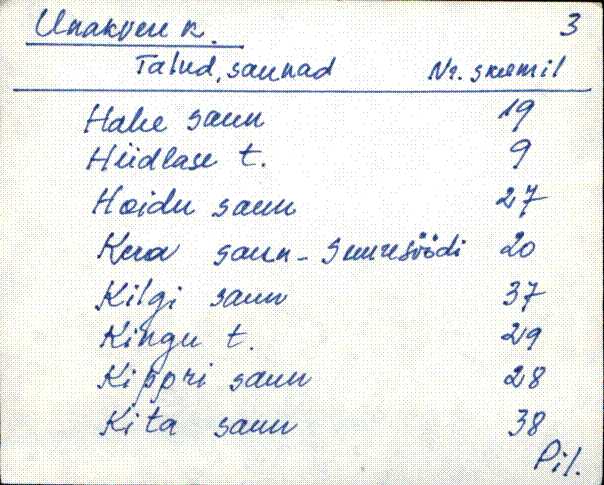 Unakvere k. 3
Talud, saunad Nr. skeemil
Hake saun 19
Hüdlase t. 9
Hoidu saun 27
Kera saun - Suuresöödi 20
Kilgi saun 37
Kingu t. 29
Kippri saun 28
Kita saun 38
Pil.